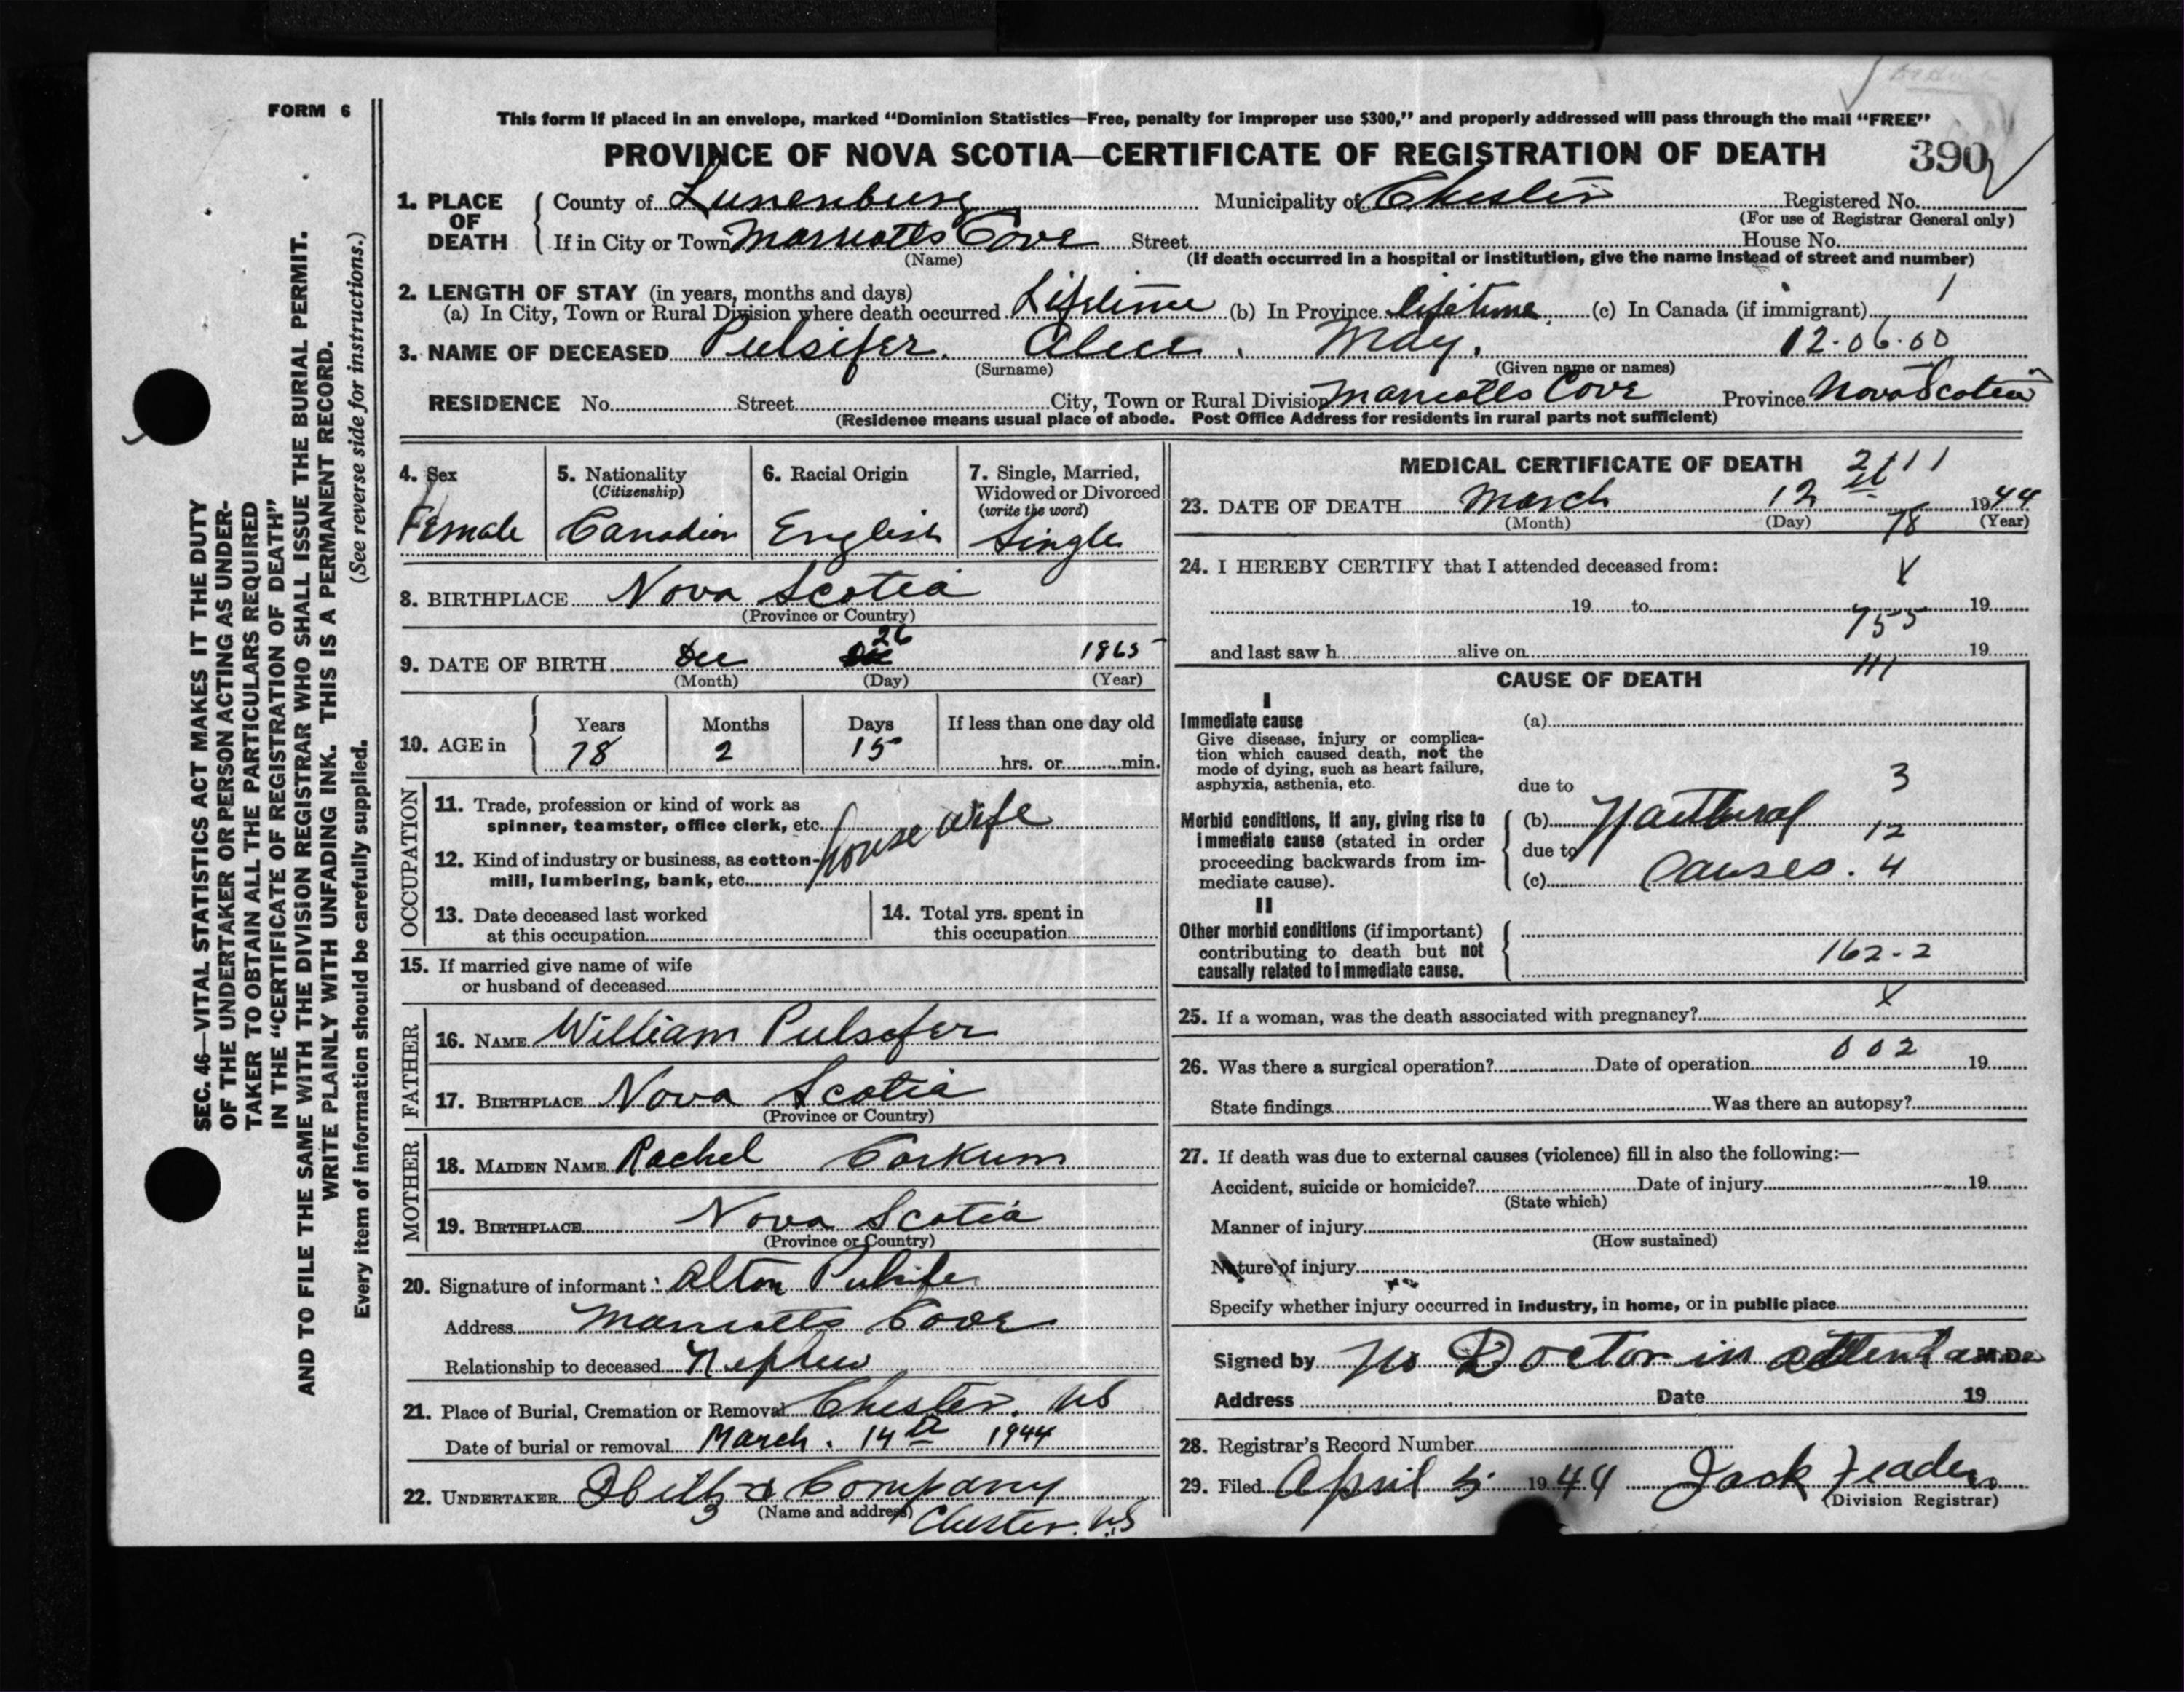 FORM 6
This form if placed in an envelope, marked “Dominion Statistics—Free, penalty for improper use $300,” and properly addressed will pass through the mail “FREE”
PROVINCE OF NOVA SCOTIA—CERTIFICATE OF REGISTRATION OF DEATH 390
1. PLACE OF DEATH
County of Lunenburg Municipality of Chester Registered No.
(For use of Registrar General only)
If in City or Town Marriotts Cove Street House No.
(Name) (If death occurred in a hospital or institution, give the name instead of street and number)
2. LENGTH OF STAY (in years, months and days) 1
(a) In City, Town or Rural Division where death occurred Lifetime (b) In Province lifetime (c) In Canada (if immigrant)
3. NAME OF DECEASED Pulsifer. Alice. May. 12-06-00
(Surname) (Given name or names)
RESIDENCE No. Street City, Town or Rural Division Marriotts Cove Province Nova Scotia
(Residence means usual place of abode. Post Office Address for residents in rural parts not sufficient)
4. Sex
Female
5. Nationality
(Citizenship)
Canadian
6. Racial Origin
English
7. Single, Married,
Widowed or Divorced
(write the word)
Single
8. BIRTHPLACE Nova Scotia
(Province or Country)
9. DATE OF BIRTH Dec 26 1865
(Month) (Day) (Year)
10. AGE in
Years Months Days If less than one day old
78 2 15 hrs. or min.
OCCUPATION
11. Trade, profession or kind of work as
spinner, teamster, office clerk, etc.
house wife
12. Kind of industry or business, as cotton-
mill, lumbering, bank, etc.
13. Date deceased last worked
at this occupation
14. Total yrs. spent in
this occupation
15. If married give name of wife
or husband of deceased
FATHER
16. NAME William Pulsofer
17. BIRTHPLACE Nova Scotia
(Province or Country)
MOTHER
18. MAIDEN NAME Rachel Corkum
19. BIRTHPLACE Nova Scotia
(Province or Country)
20. Signature of informant: Alton Pulsifer
Address Marriotts Cove
Relationship to deceased Nephew
21. Place of Burial, Cremation or Removal Chester. NS
Date of burial or removal March. 14th 1944
22. UNDERTAKER & Company
(Name and address) Chester. N.S
MEDICAL CERTIFICATE OF DEATH 2111
23. DATE OF DEATH March 12 1944
(Month) (Day) (Year)
78
24. I HEREBY CERTIFY that I attended deceased from:
X
19 to 19
755
and last saw h alive on 19
111
CAUSE OF DEATH
I
Immediate cause
Give disease, injury or complica-
tion which caused death, not the
mode of dying, such as heart failure,
asphyxia, asthenia, etc.
(a)
due to 3
Morbid conditions, if any, giving rise to
immediate cause (stated in order
proceeding backwards from im-
mediate cause).
(b) Naitheral 12
due to
(c) Causes. 4
II
Other morbid conditions (if important)
contributing to death but not
causally related to immediate cause.
162-2
X
25. If a woman, was the death associated with pregnancy?
26. Was there a surgical operation? Date of operation 002 19
State findings Was there an autopsy?
27. If death was due to external causes (violence) fill in also the following:—
Accident, suicide or homicide? Date of injury 19
(State which)
Manner of injury
(How sustained)
Nature of injury
Specify whether injury occurred in industry, in home, or in public place
Signed by No Doctor in attendance M.D.
Address Date 19
28. Registrar's Record Number
29. Filed April 5 1944 Jack Feader
(Division Registrar)
SEC. 46—VITAL STATISTICS ACT MAKES IT THE DUTY
OF THE UNDERTAKER OR PERSON ACTING AS UNDER-
TAKER TO OBTAIN ALL THE PARTICULARS REQUIRED
IN THE “CERTIFICATE OF REGISTRATION OF DEATH”
AND TO FILE THE SAME WITH THE DIVISION REGISTRAR WHO SHALL ISSUE THE BURIAL PERMIT.
WRITE PLAINLY WITH UNFADING INK. THIS IS A PERMANENT RECORD.
Every item of information should be carefully supplied. (See reverse side for instructions.)